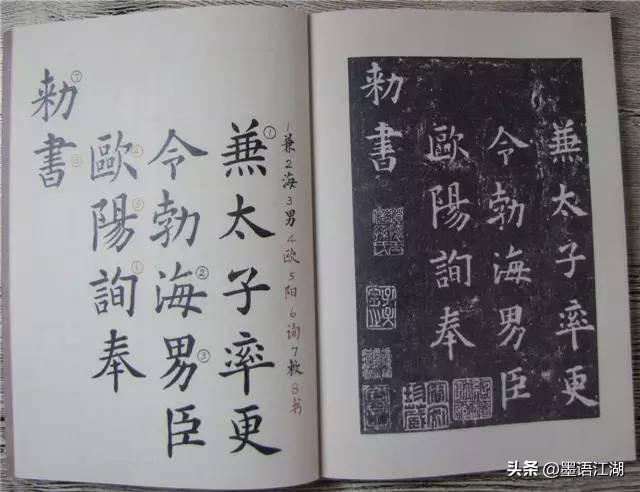 兼太子率更
令勃海男臣
歐陽詢奉
勑書
①
②
③
①
⑦
1兼2海3男4欧5阳6询7敕8书
兼太子率更
令勃海男臣
歐陽詢奉
勑書
头条 @墨语江湖